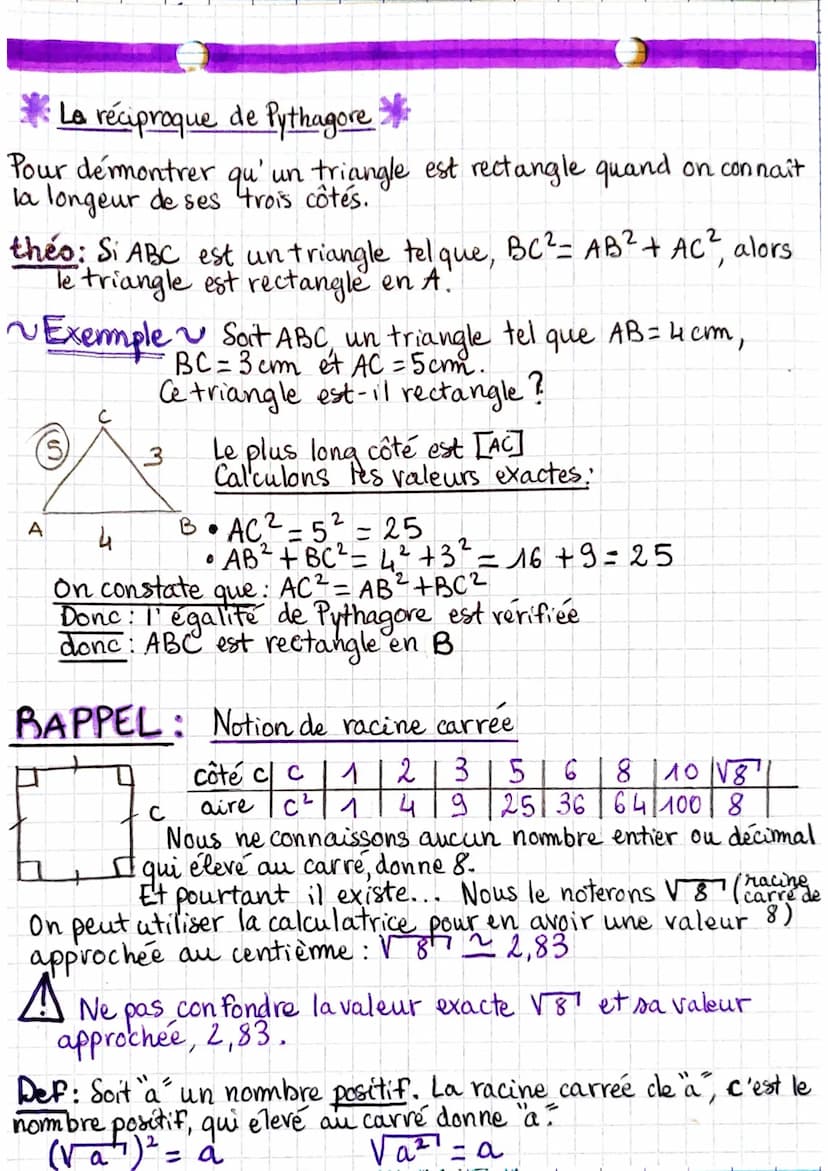 * La réciproque de Pythagore *
Pour démontrer qu'un triangle est rectangle quand on connaît
la longeur de ses trois côtés.
théo: Si ABC est un triangle tel que, BC² = AB² + AC², alors
le triangle est rectangle en A.
~ Exemple ~ Soit ABC, un triangle tel que AB = 4 cm,
BC = 3 cm et AC = 5 cm.
Ce triangle est-il rectangle ?
C
5
3
A
B
4
Le plus long côté est [AC]
Calculons les valeurs exactes:
• AC² = 5² = 25
• AB² + BC² = 4² + 3² = 16 + 9 = 25
On constate que : AC² = AB² + BC²
Donc : l'égalité de Pythagore est vérifiée
donc : ABC est rectangle en B
RAPPEL : Notion de racine carrée
côté c | c | 1 | 2 | 3 | 5 | 6 | 8 | 10 | √8 |
aire | c² | 1 | 4 | 9 | 25 | 36 | 64 | 100 | 8 |
c
Nous ne connaissons aucun nombre entier ou décimal
qui élevé au carré, donne 8.
Et pourtant il existe... Nous le noterons √8 (racine
carré de
8)
On peut utiliser la calculatrice pour en avoir une valeur
approchée au centième : √8 ≃ 2,83
⚠ Ne pas confondre la valeur exacte √8 et sa valeur
approchée, 2,83.
Def : Soit "a" un nombre positif. La racine carrée de "a", c'est le
nombre positif, qui elevé au carré donne "a".
(√a)² = a √a² = a